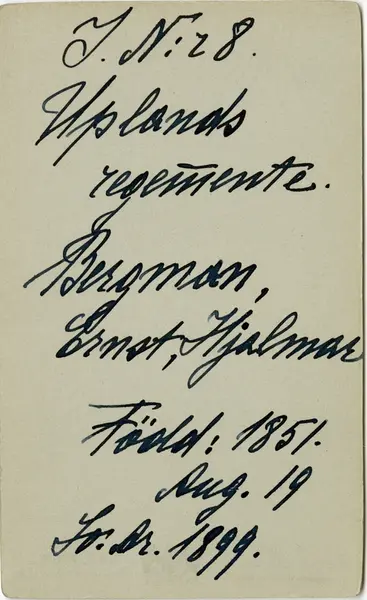 I. N:r 8.
Uplands
regemente.
Bergman,
Ernst, Hjalmar
Född: 1851.
Aug. 19
1899.